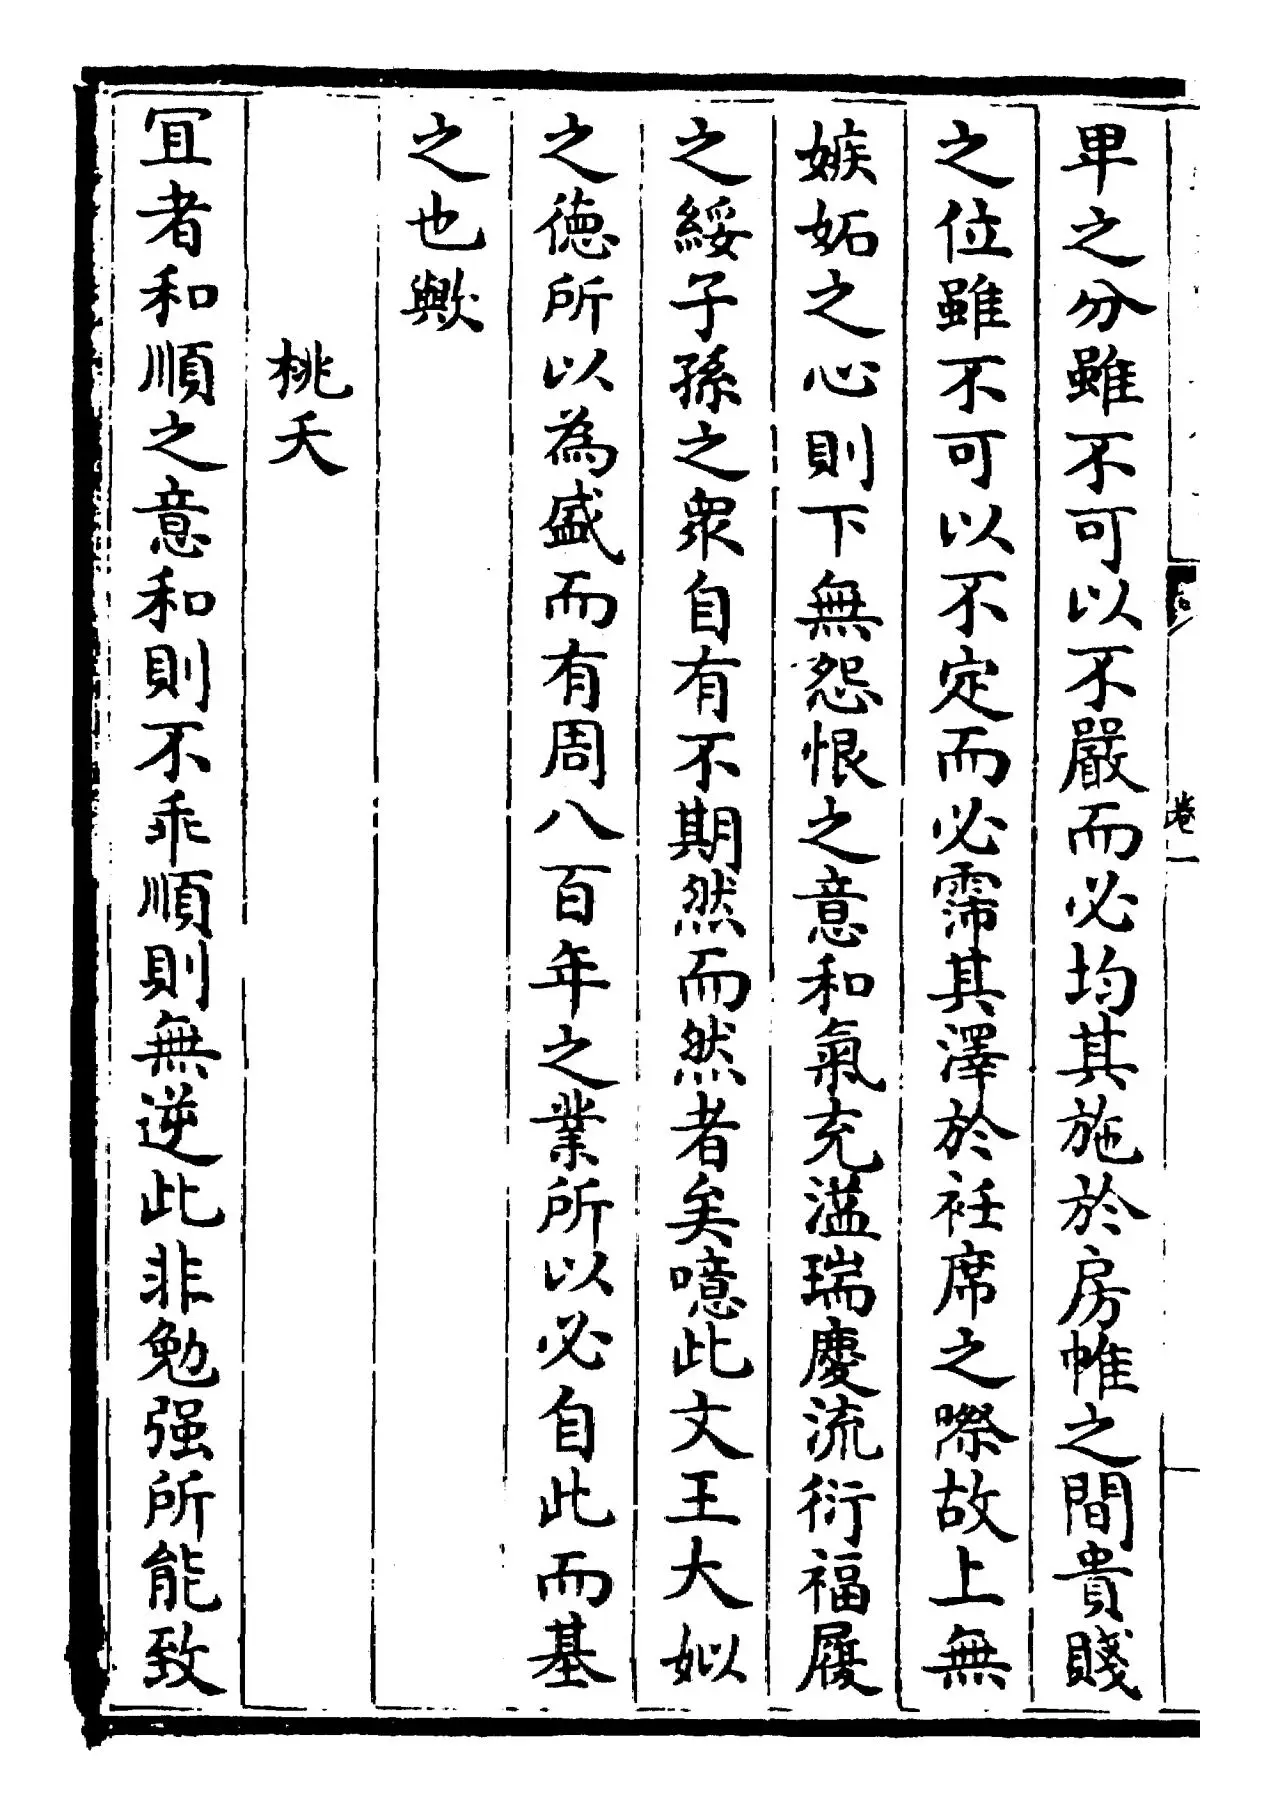 卑之分雖不可以不嚴而必均其施於房帷之間貴賤
之位雖不可以不定而必霈其澤於袵席之際故上無
嫉妬之心則下無怨恨之意和氣充溢瑞慶流衍福履
之綏子孫之衆自有不期然而然者矣噫此文王大姒
之徳所以為盛而有周八百年之業所以必自此而基
之也歟
桃夭
宜者和順之意和則不乖順則無逆此非勉强所能致
卷一